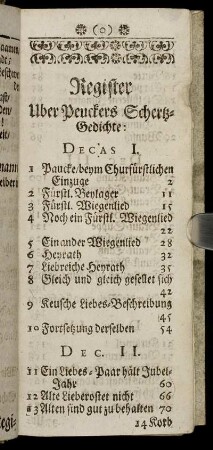 (o)
Register
Uber Peuckers Schertz-
Gedichte:
DECAS I.
1 Paucke/beym Churfürstlichen
Einzuge 2
2 Fürstl. Beylager 11
3 Fürstl. Wiegenlied 15
4 Noch ein Fürstl. Wiegenlied
22
5 Ein ander Wiegenlied 28
6 Heyrath 32
7 Liebreiche Heyrath 35
8 Gleich und gleich gesellet sich
42
9 Keusche Liebes-Beschreibung
45
10 Fortsetzung derselben 54
DEC. II.
11 Ein Liebes-Paar hält Jubel-
Jahr 60
12 Alte Lieberostet nicht 66
13 Alten sind gut zu behalten 70
14 Korb